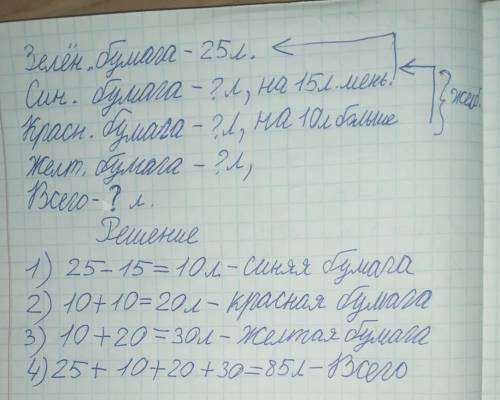 Зелён. бумага - 25л.
Син. бумага - ?л, на 15л. мень.
Красн. бумага - ?л, на 10л больше
Желт. бумага - ?л,
Всего - ? л.
Решение
1) 25 - 15 = 10л - синяя бумага
2) 10 + 10 = 20л - красная бумага
3) 10 + 20 = 30л - желтая бумага
4) 25 + 10 + 20 + 30 = 85л - Всего